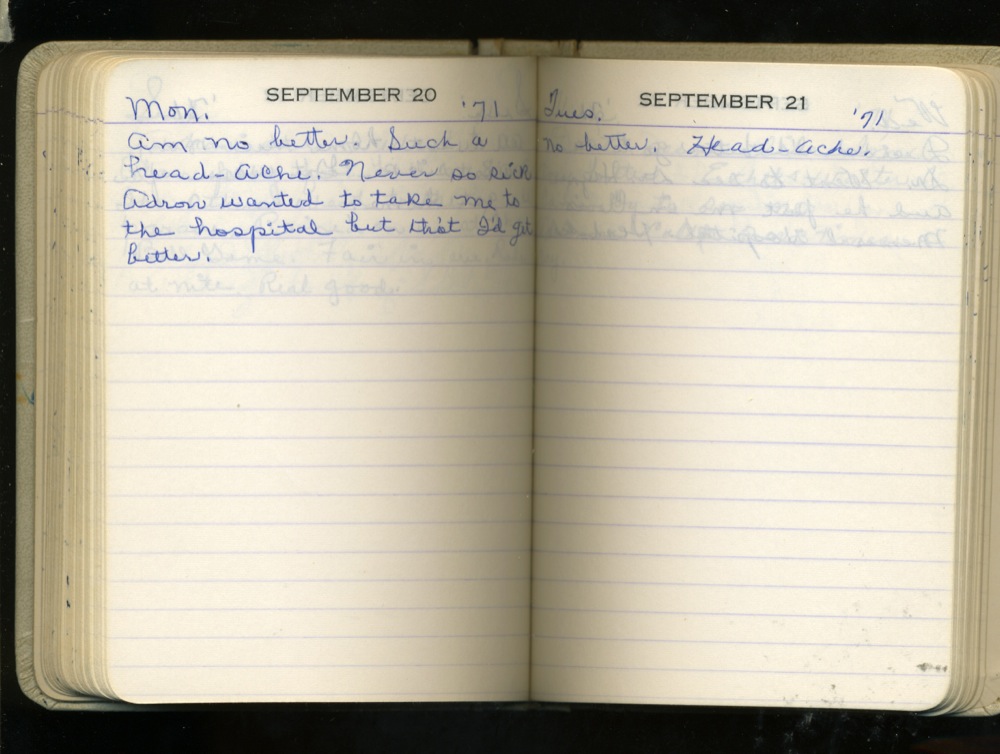 SEPTEMBER 20
Mon. '71
am no better. Such a
head-ache. Never so sick
Adron wanted to take me to
the hospital but that I'd get
better.
at nite. Real good
SEPTEMBER 21
Tues. '71
no better. Head-ache.